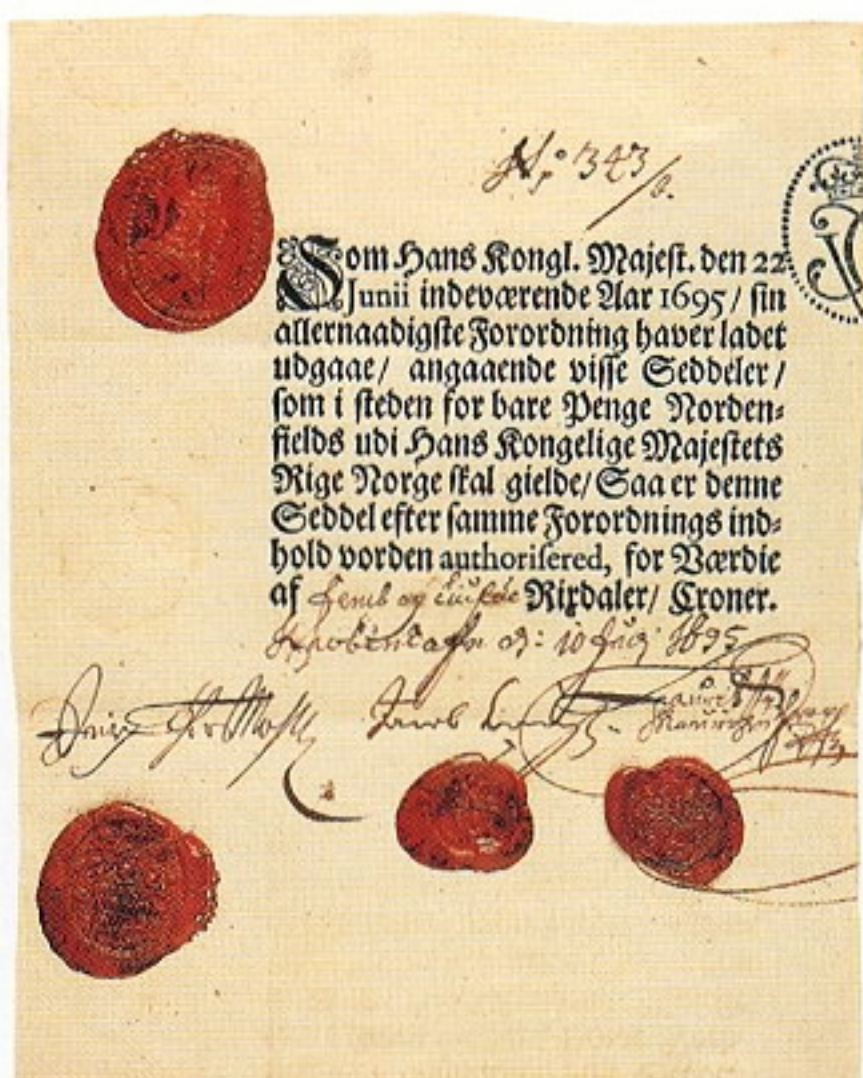 No. 343
Som Hans Kongl. Majest. den 22
Junii indeværende Aar 1695/ sin
allernaadigste Forordning haver ladet
udgaae/ angaaende visse Seddeler/
som i steden for bare Penge Norden-
fields udi Hans Kongelige Majestets
Rige Norge skal gielde/ Saa er denne
Seddel efter samme Forordnings ind-
hold vorden authorisered, for Værdie
af Femb og Rixdaler/ Croner.
d: 10 1695
Jacob